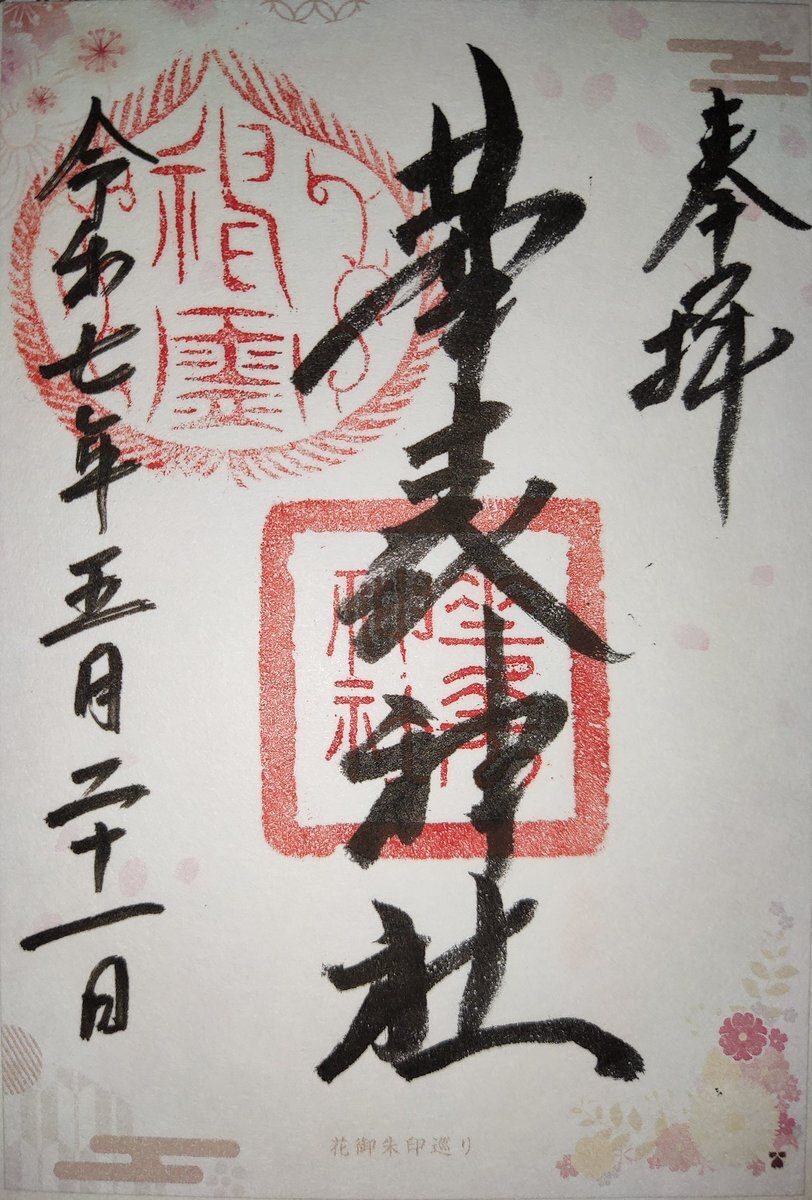 奉拝
華表神社
令和七年五月二十一日
花御朱印巡り